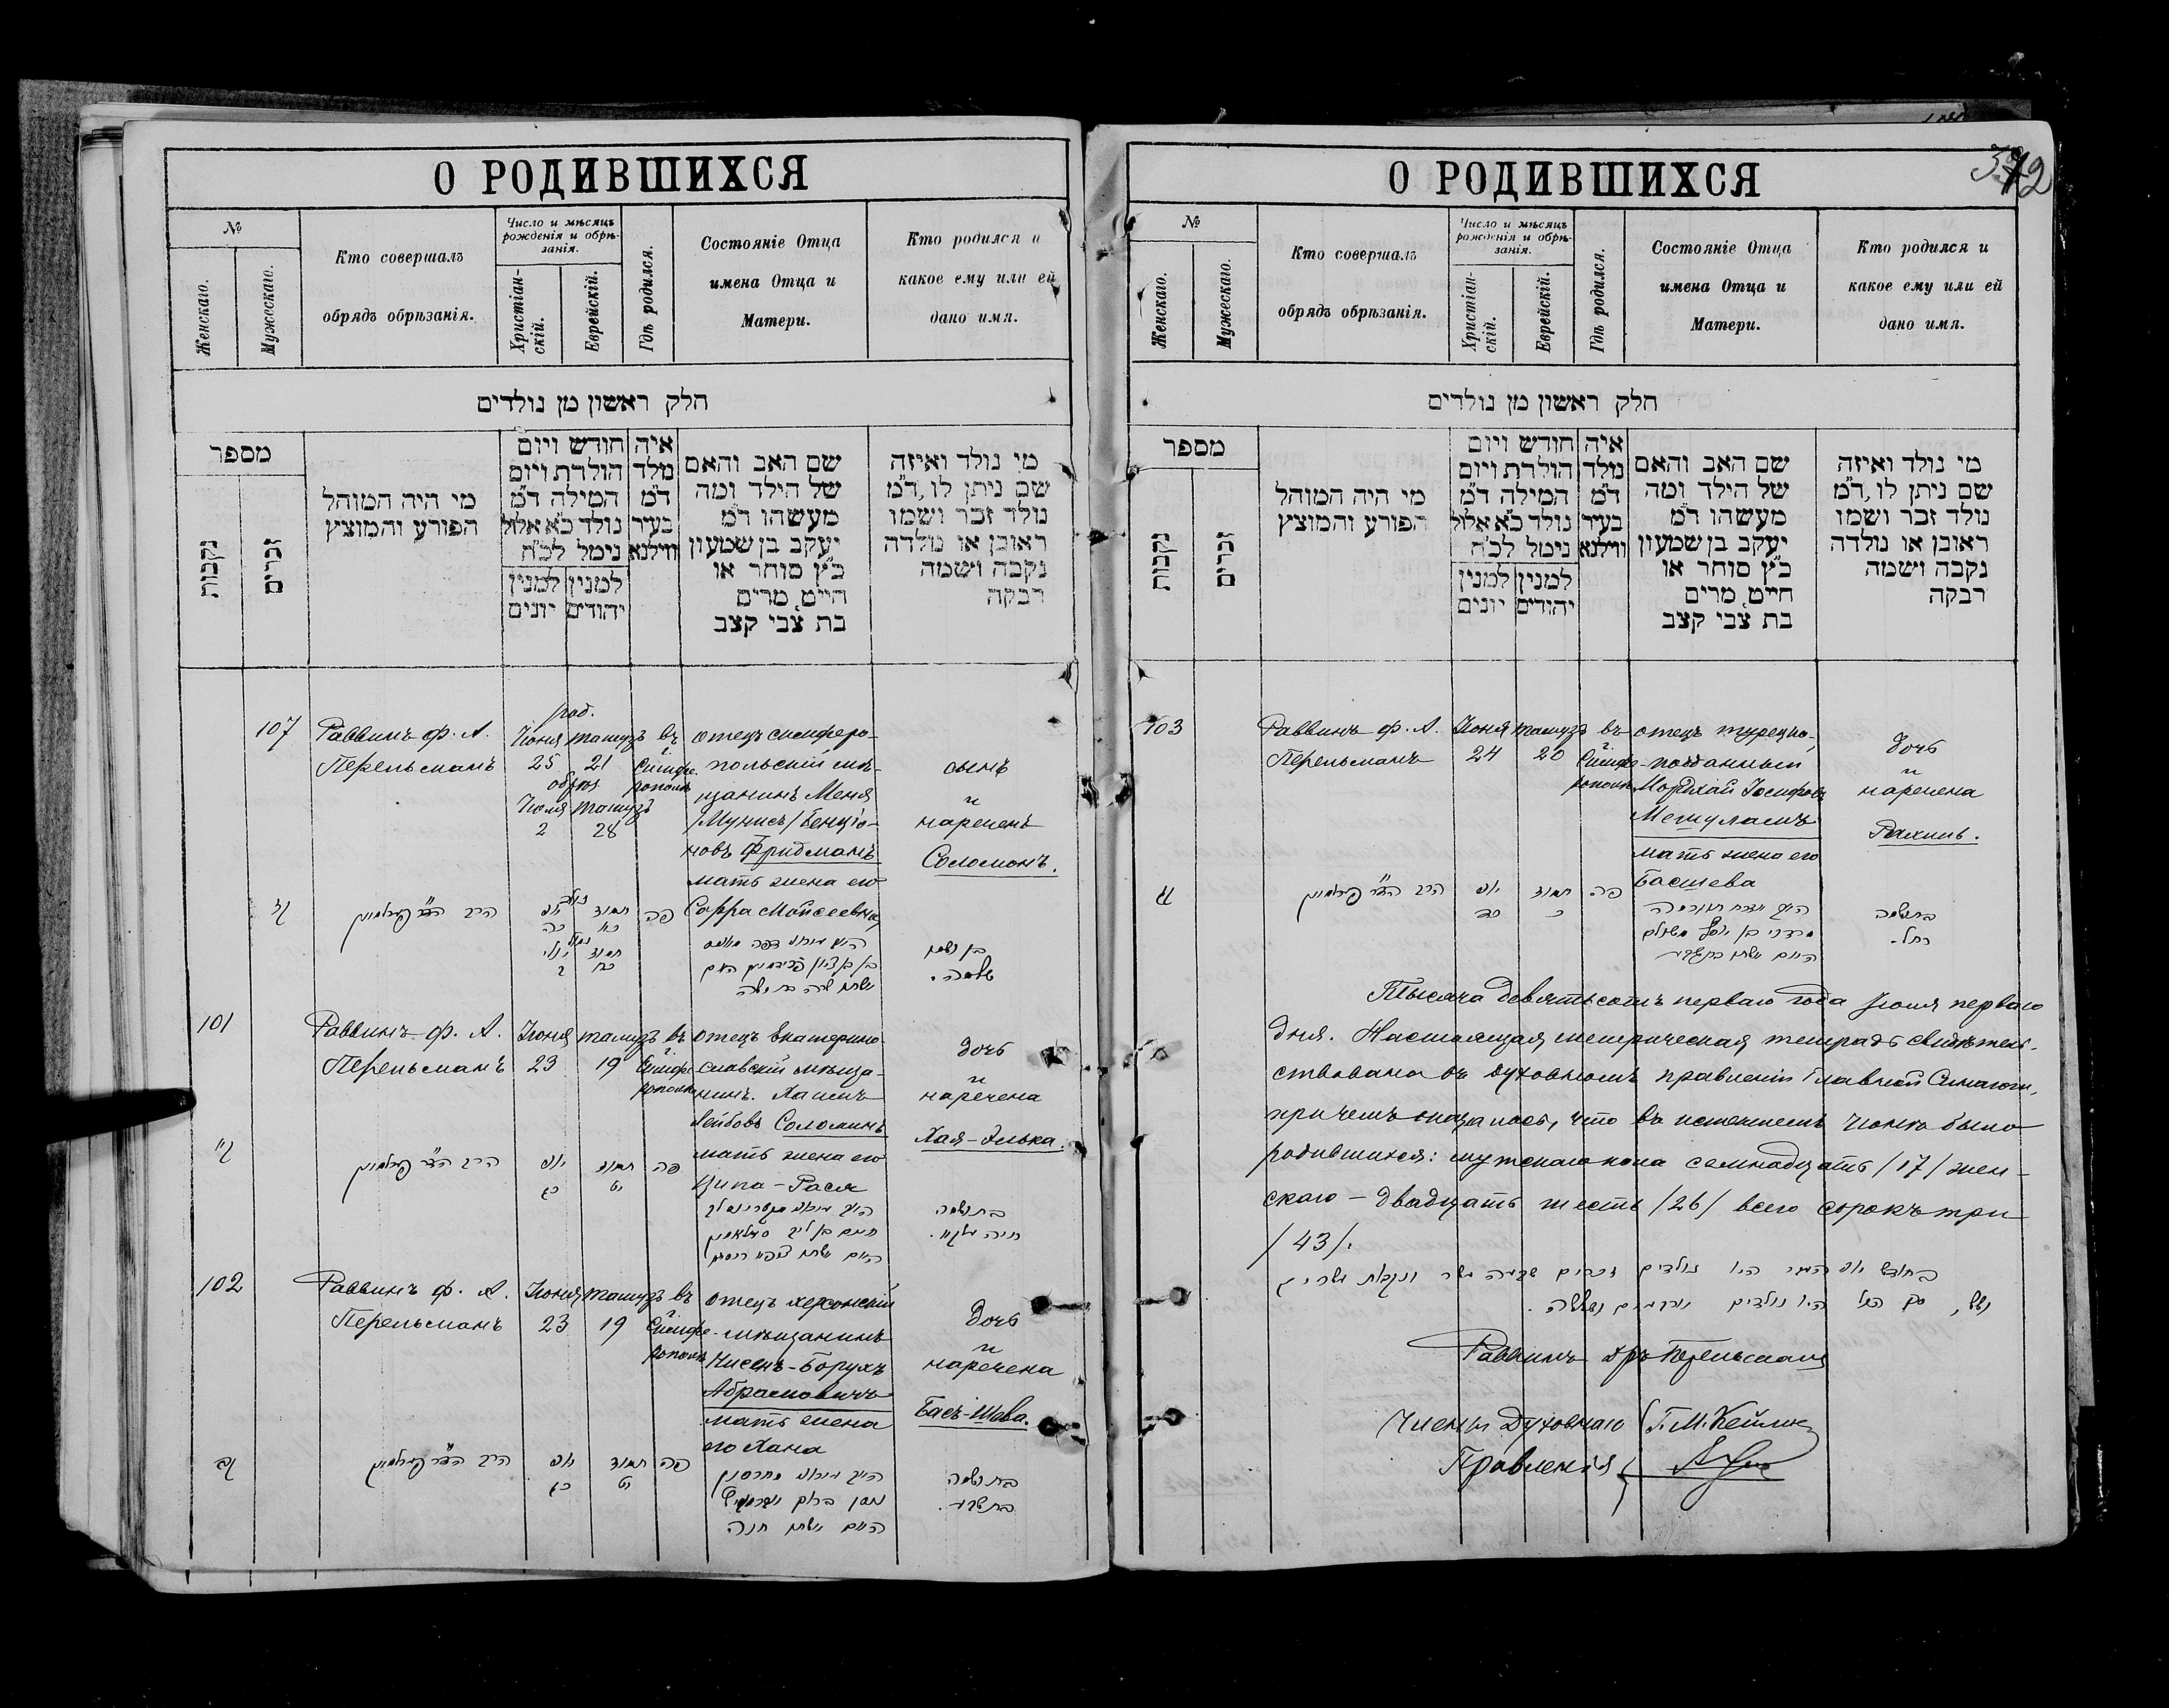 О РОДИВШИХСЯ
№
Женскаго.
Мужескаго.
Кто совершалъ
обрядъ обрѣзанія.
Число и мѣсяцъ
рожденія и обрѣ-
занія.
Христіан-
скій.
Еврейскій.
Гдѣ родился.
Состояніе Отца
имена Отца и
Матери.
Кто родился и
какое ему или ей
дано имя.
חלק ראשון מן נולדים
מספר
נקבות
זכרים
מי היה המוהל
הפורע והמוצץ
חודש ויום
הולדת ויום
המילה ד״מ
נולד כ״א אלול
נימל לכ״ח
למנין למנין
יהודים יונים
איה
נולד
ד״מ
בעיר
ווילנא
שם האב והאם
של הילד ומה
מעשהו ד״מ
יעקב בן שמעון
כ״ץ סוחר או
חייט, מרים
בת צבי קצב
מי נולד ואיזה
שם ניתן לו, ד״מ
נולד זכר ושמו
ראובן או נולדה
נקבה ושמה
רבקה
107
Раввинъ ф. А.
Перельманъ
род.
Іюня тамузъ
25 21
обрѣз.
Іюля тамузъ
2 28
въ г.
Симфе-
рополѣ
отецъ симферо-
польскій мѣ-
щанинъ Меня
/Мунисъ/ Бенціо-
новъ Фридманъ
мать жена его
Сарра Мойсеевна
сынъ
и
нареченъ
Соломонъ.
הרב הד״ר פערלמאן
תמוז
כא
כה
תמוז יולי
כח 2
פה
בן ושמו
שלמה.
101
Раввинъ ф. А.
Перельманъ
Іюня тамузъ
23 19
въ г.
Симфе-
рополѣ
отецъ Екатерино-
славскій мѣща-
нинъ. Хаимъ
Лейбовъ Соломинъ
мать жена его
Ципа-Рася
дочь
и
наречена
Хая-Элька.
הרב הד״ר פערלמאן
תמוז
יט
כג
פה
בת ושמה
חיה עלקא.
102
Раввинъ ф. А.
Перельманъ
Іюня тамузъ
23 19
въ г.
Симфе-
рополѣ
отецъ херсонскій
мѣщанинъ
Нисенъ-Борухъ
Абрамовичъ
мать жена
его Хана
дочь
и
наречена
Басъ-Шева.
הרב הד״ר פערלמאן
תמוז
יט
כג
פה
האם ושמה חנה
בת ושמה
בת שבע.
О РОДИВШИХСЯ
№
Женскаго.
Мужескаго.
Кто совершалъ
обрядъ обрѣзанія.
Число и мѣсяцъ
рожденія и обрѣ-
занія.
Христіан-
скій.
Еврейскій.
Гдѣ родился.
Состояніе Отца
имена Отца и
Матери.
Кто родился и
какое ему или ей
дано имя.
חלק ראשון מן נולדים
מספר
נקבות
זכרים
מי היה המוהל
הפורע והמוצץ
חודש ויום
הולדת ויום
המילה ד״מ
נולד כ״א אלול
נימל לכ״ח
למנין למנין
יהודים יונים
איה
נולד
ד״מ
בעיר
ווילנא
שם האב והאם
של הילד ומה
מעשהו ד״מ
יעקב בן שמעון
כ״ץ סוחר או
חייט, מרים
בת צבי קצב
מי נולד ואיזה
שם ניתן לו, ד״מ
נולד זכר ושמו
ראובן או נולדה
נקבה ושמה
רבקה
103
Раввинъ ф. А.
Перельманъ
Іюня тамузъ
24 20
въ г.
Симфе-
рополѣ
отецъ турецко-
подданный
Мордхай Іосифовъ
Мешуламъ
мать жена его
Басшева
дочь
и
наречена
Рахиль.
הרב הד״ר פערלמאן
תמוז
כ
כד
פה
מרדכי בן יוסף משולם
האם ושמה בת שבע
בת ושמה
רחל.
Тысяча девятьсотъ перваго года Іюля перваго
дня. Настоящая метрическая тетрадь свидѣтель-
ствована въ Духовномъ правленіи Главной Синагоги,
при чемъ оказалось, что въ истекшемъ Іюнѣ было
родившихся: мужскаго пола семнадцать /17/ жен-
скаго – двадцать шесть /26/ всего сорокъ три
/43/.
זכרים שבעה עשר ונקבות עשרים
ושש, סך הכל היו נולדים ארבעים ושלשה.
Раввинъ Дръ Перельманъ
Члены Духовнаго
Правленія